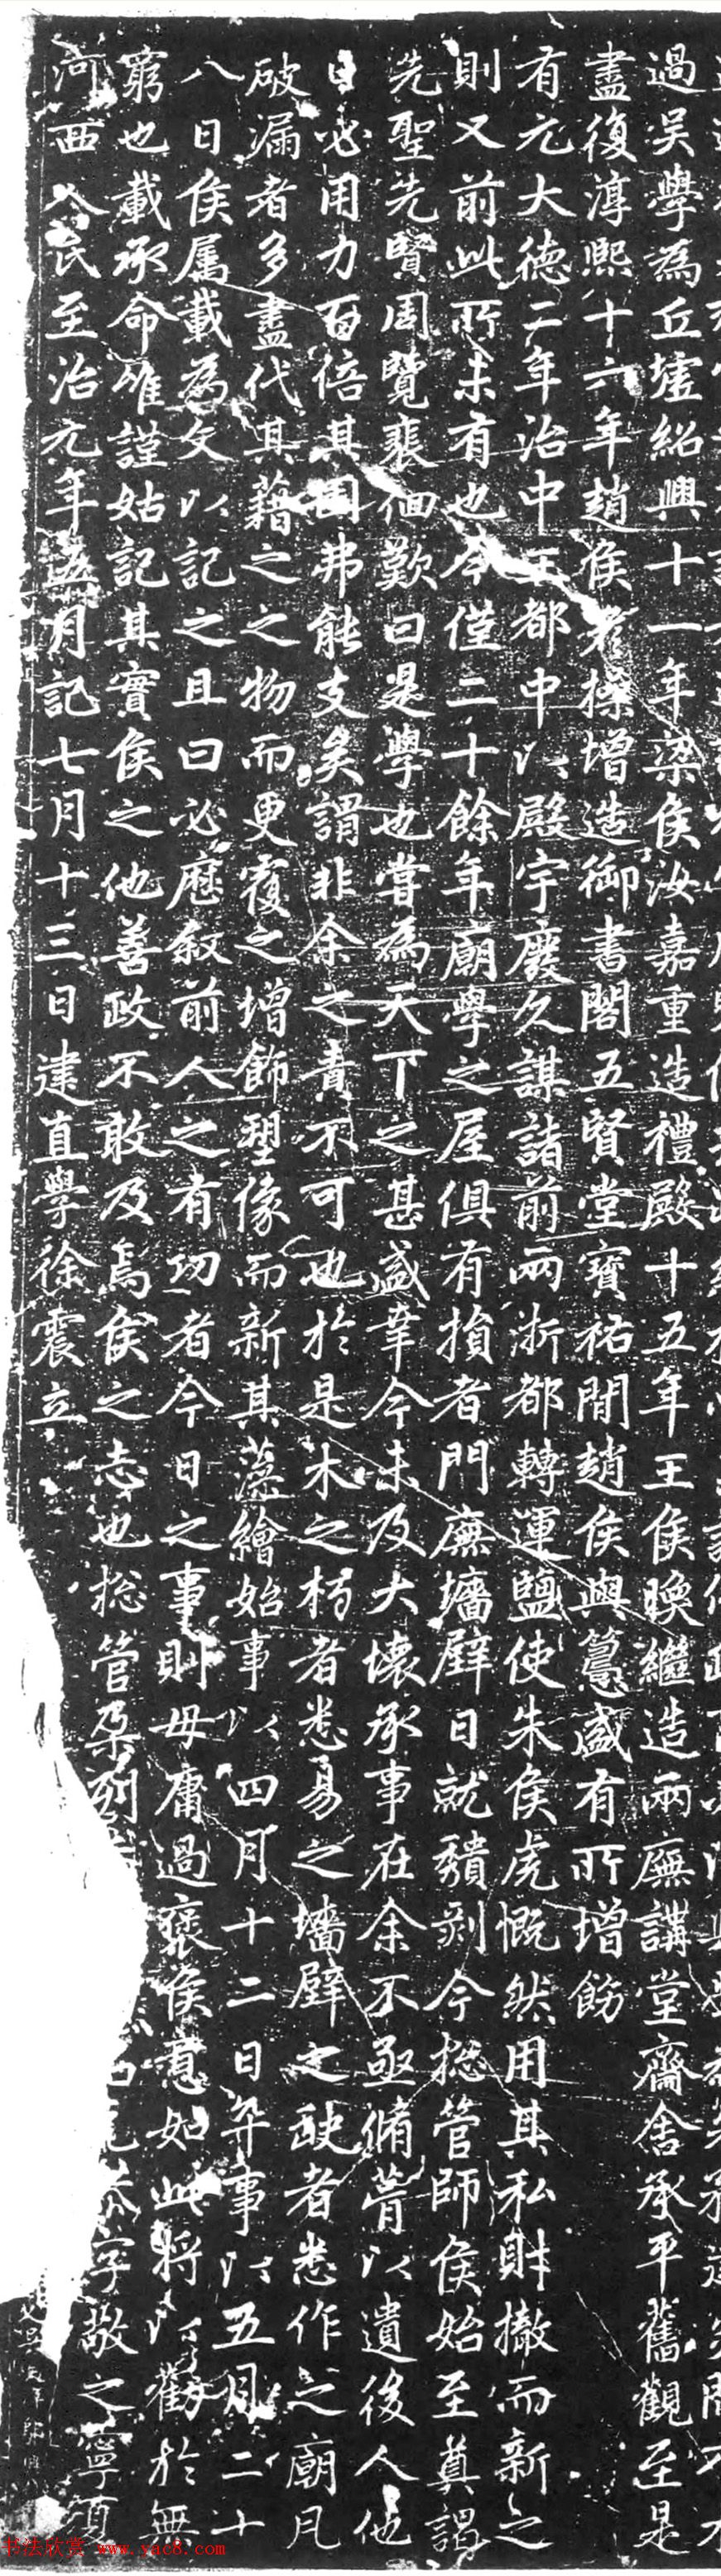 過吴學為丘墟紹興十一年梁侯汝嘉重造禮殿十五年王侯㬇繼造兩廡講堂齋舍承平舊觀至是
盡復淳熙十六年趙侯彦操增造御書閣五賢堂寳祐間趙侯與𥲅盛有所增飭
有元大德二年治中王都中以殿宇廢久謀諸前兩浙都轉運鹽使朱侯虎慨然用其私財撤而新之
則又前此所未有也今僅二十餘年廟學之屋俱有損者門廡墻壁日就隳剥今捴管師侯始至奠謁
先聖先賢周覽裴佪歎曰是學也嘗為天下之甚盛幸今未及大壞承事在余不亟脩葺以遺後人他
日必用力百倍其固弗能支矣謂非余之責不可也於是木之朽者悉易之墻壁之缺者悉作之廟凡
破漏者多盡代其藉之之物而更覆之增飾塑像而新其藻繪始事以四月十二日卒事以五月二十
八日侯屬載為文以記之且曰必歷叙前人之有功者今日之事則毋庸過褒侯意如此將以勸於無
窮也載承命唯謹姑記其實侯之他善政不敢及焉侯之志也捴管朶列 字敬之寧夏
河西人氏至治元年五月記七月十三日建直學徐震立
书法欣赏 www.yac8.com